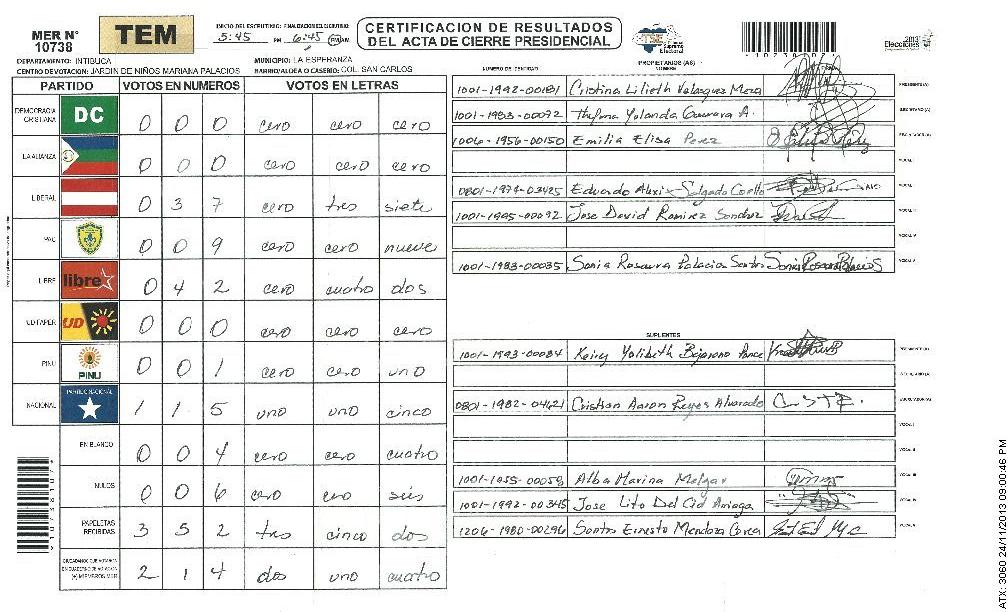 MER N° 10738
TEM
INICIO DEL ESCRUTINIO: FINALIZACION ESCRUTINIO:
5:45 PM 6:45 PM AM
CERTIFICACION DE RESULTADOS
DEL ACTA DE CIERRE PRESIDENCIAL
TSE
2013
Elecciones
DEPARTAMENTO: INTIBUCA
MUNICIPIO: LA ESPERANZA
CENTRO DE VOTACION: JARDIN DE NIÑOS MARIANA PALACIOS
BARRIO/ALDEA O CASERIO: COL. SAN CARLOS
PARTIDO VOTOS EN NUMEROS VOTOS EN LETRAS
DEMOCRACIA CRISTIANA DC 0 0 0 cero cero cero
LA ALIANZA 0 0 0 cero cero cero
LIBERAL 0 3 7 cero tres siete
PAC 0 0 9 cero cero nueve
LIBRE libre 0 4 2 cero cuatro dos
UD FAPER UD 0 0 0 cero cero cero
PINU PINU 0 0 1 cero cero uno
NACIONAL PARTIDO NACIONAL 1 1 5 uno uno cinco
EN BLANCO 0 0 4 cero cero cuatro
NULOS 0 0 6 cero cero seis
PAPELETAS RECIBIDAS 3 5 2 tres cinco dos
2 1 4 dos uno cuatro
NUMERO DE IDENTIDAD PROPIETARIOS (AS) NOMBRE
1001-1992-00181 Cristina Lilieth Velasquez Meza PRESIDENTE(A)
1001-1983-00092 Thelma Yolanda A. SECRETARIO (A)
1006-1956-00150 Emilia Elisa Perez ESCRUTADOR (A)
VOCAL I
0801-1974-03425 Eduardo Alexis Salgado Coello VOCAL II
1001-1995-00092 Jose David Ramirez Sanchez VOCAL III
VOCAL IV
1001-1983-00035 Sonia Rosaura Palacios Santos Sonia Rosaura Palacios VOCAL V
SUPLENTES
1001-1993-00084 Keiry Yolibeth Bejarano Ponce PRESIDENTE (A)
SECRETARIO (A)
0801-1982-04621 Cristian Aaron Reyes Alvarado ESCRUTADOR (A)
VOCAL I
VOCAL II
1001-1955-00059 Alba Marina Melgar VOCAL III
1001-1992-00345 Jose Lito Del Cid Arriaga VOCAL IV
1206-1980-00296 Santos Ernesto Mendoza Corea VOCAL V
ATX: 3060 24/11/2013 09:00:46 PM